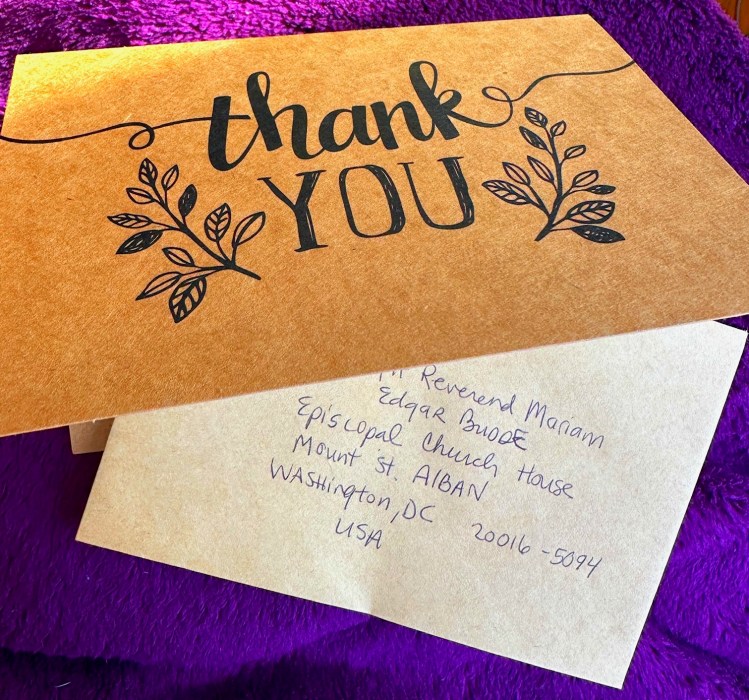 thank
YOU
Reverend Mariam
Edgar BUDDE
Episcopal Church House
Mount St. AlBAN
WAsHington, DC 20016-5094
USA